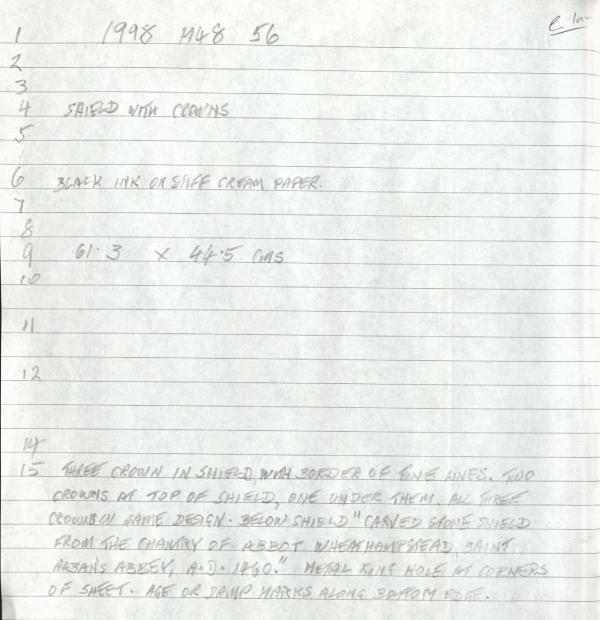 1 1998 M48 56
2
3
4 SHIELD WITH CROWNS
5
6 BLACK INK ON STIFF CREAM PAPER.
7
8
9 61.3 x 44.5 cms
10
11
12
14
15 THREE CROWN IN SHIELD WITH BORDER OF FINE LINES. TWO
CROWNS AT TOP OF SHIELD, ONE UNDER THEM. ALL THREE
CROWNS SAME DESIGN. BELOW SHIELD "CARVED STONE SHIELD
FROM THE CHANTRY OF ABBOT WHEATHAMPSTEAD, SAINT
ALBAN'S ABBEY, A.D. 1460." METAL HOLE AT CORNERS
OF SHEET. AGE OR DAMP MARKS ALONG BOTTOM EDGE.